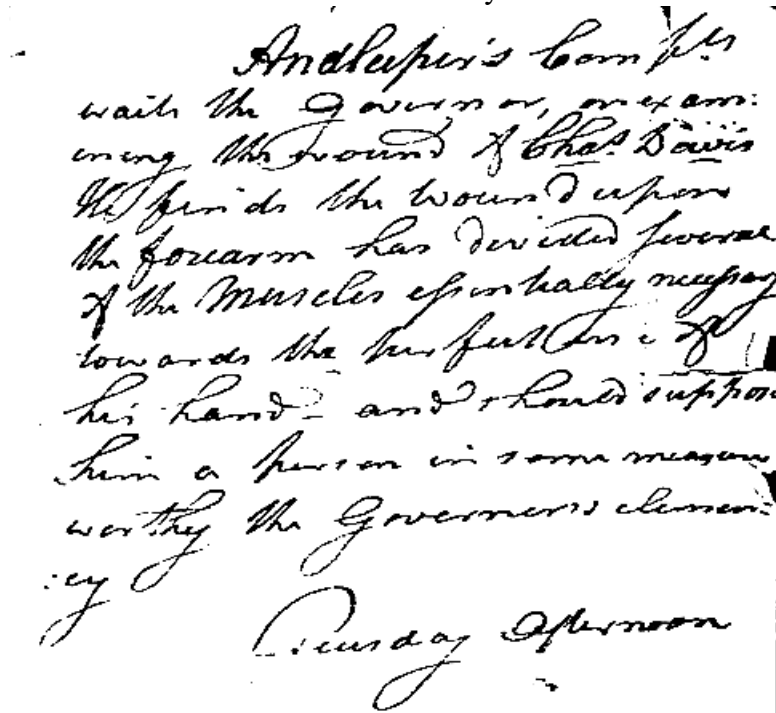 And Leiper's Comp.ts
waits the Governor, on exam:
ining the wound of Chas. Davis
He finds the wound upon
the forearm has divided several
of the Muscles essentially necessary
towards the perfect use of
his hand - and should suppose
him a person in some measure
worthy the Governor's clemen:
:cy
Tuesday Afternoon